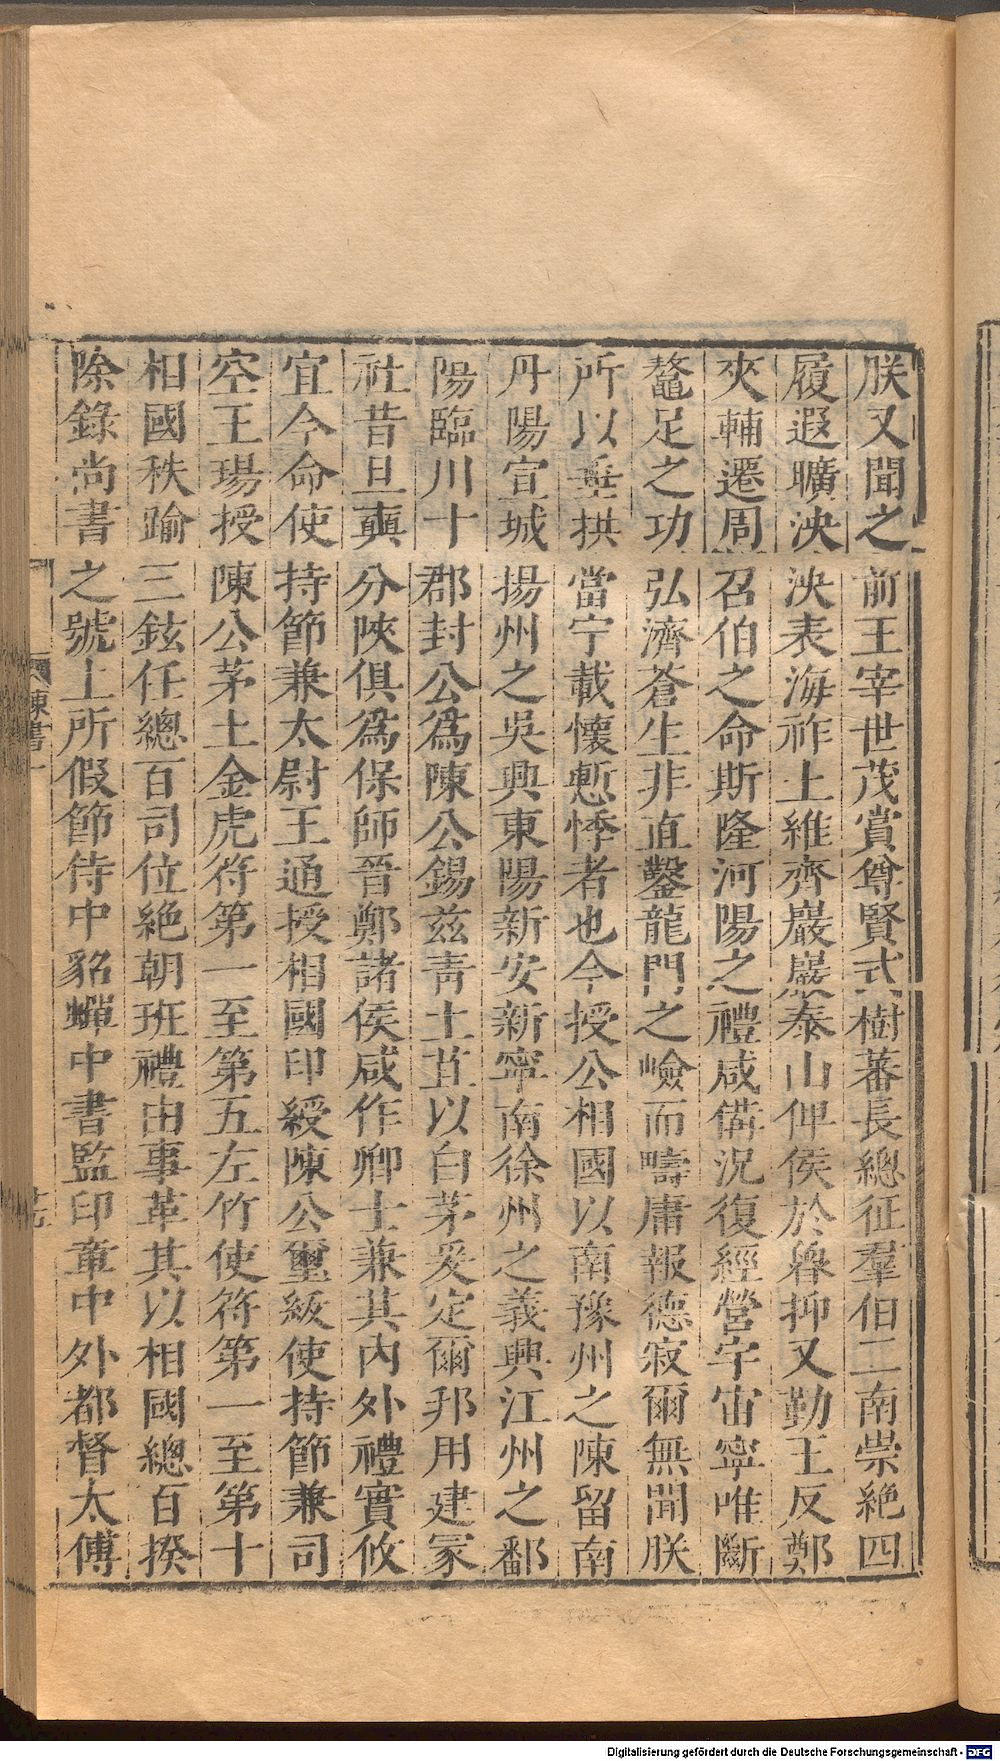 朕又聞之前王宰世茂賞尊賢式樹蕃長總征羣伯二南崇絕四
履遐曠泱泱表海祚土維齊巖巖泰山俾侯於魯抑又勤王反鄭
夾輔遷周召伯之命斯隆河陽之禮咸備況復經營宇宙寧唯斷
鼇足之功弘濟蒼生非直鑿龍門之嶮而疇庸報德寂爾無聞朕
所以垂拱當宁載懷慙悸者也今授公相國以南豫州之陳留南
丹陽宣城揚州之吳興東陽新安新寧南徐州之義興江州之鄱
陽臨川十郡封公爲陳公錫茲靑土苴以白茅爰定爾邦用建冢
社昔旦奭分陝俱爲保師晉鄭諸侯咸作卿士兼其內外禮實攸
宜今命使持節兼太尉王通授相國印綬陳公璽紱使持節兼司
空王瑒授陳公茅土金虎符第一至第五左竹使符第一至第十
相國秩踰三鉉任總百司位絕朝班禮由事革其以相國總百揆
除錄尚書之號上所假節侍中貂蟬中書監印章中外都督太傅
陳書一
Digitalisierung gefördert durch die Deutsche Forschungsgemeinschaft - DFG